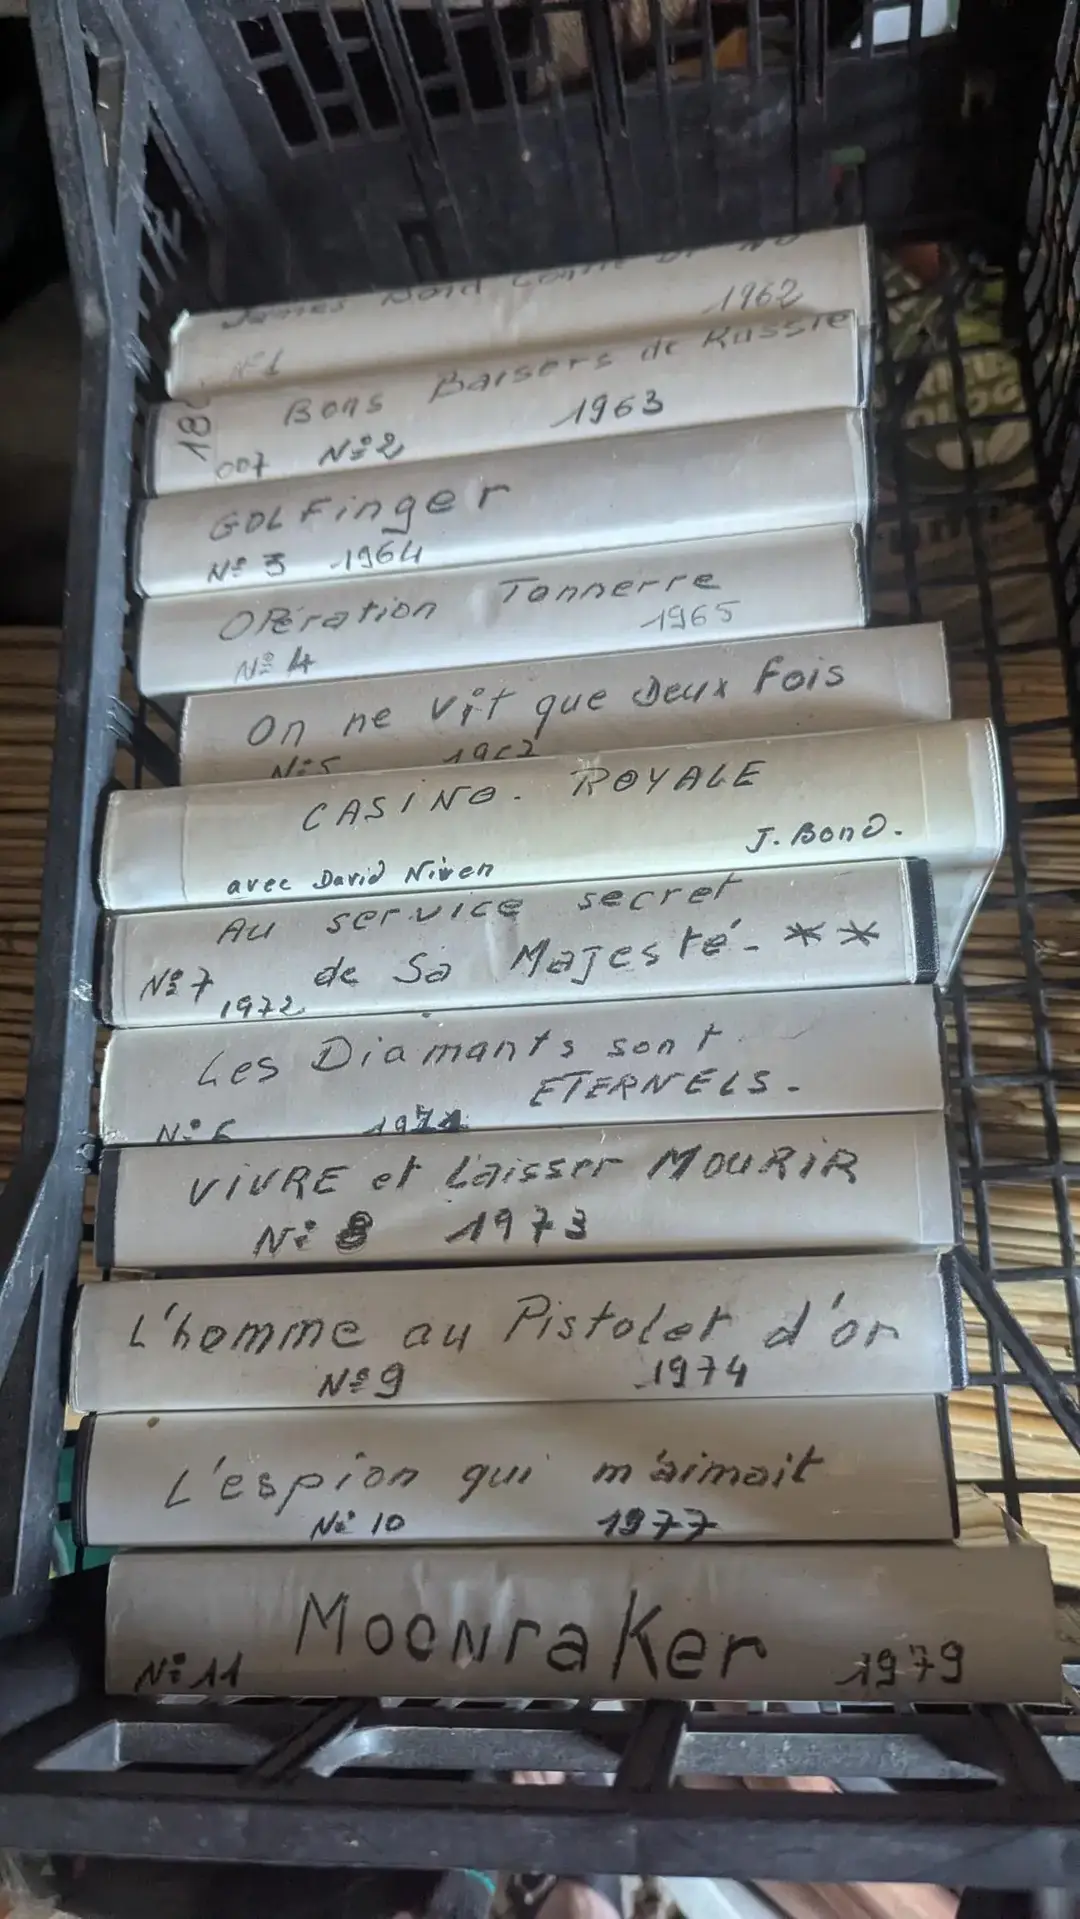 James Bond contre Dr NO
1962
N°1
Bons Baisers de Russie
18
007 N°2 1963
GOLFinger
N° 3 1964
OPération Tonnerre
1965
N° 4
On ne vit que Deux fois
N°5
CASINO. ROYALE
J. BonD.
avec David Niven
Au service secret
de Sa Majesté - **
N°7 1972
Les Diamants sont
ETERNELS.
N°6 1971
ViVRE et Laisser MOURIR
N° 8 1973
L'homme au Pistolet d'or
N°9 1974
L'espion qui m'aimait
N° 10 1977
MoonraKer
N° 11 1979